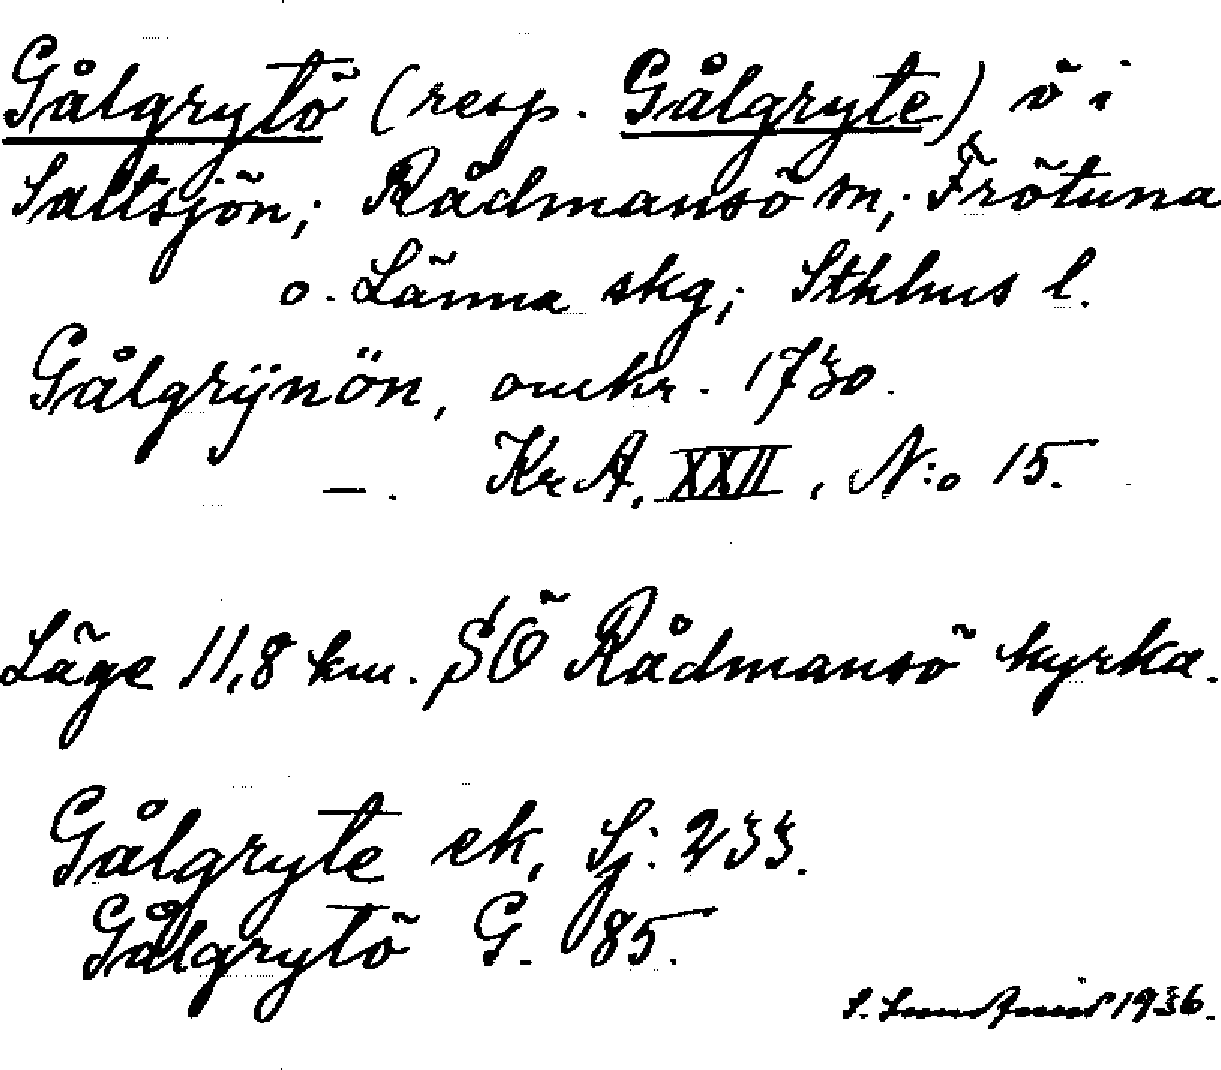 Gålgrytö (resp. Gålgryte) ö i
Saltsjön; Rådmansö sn; Frötuna
o. Länna skg; Sthlms l.
Gålgrÿnön, omkr. 1730.
—. KrA, XXII, N:o 15.
Läge 11,8 km. SÖ Rådmansö kyrka.
Gålgryte ek, Sj: 233.
Gålgrytö G. 85.
S. 1936.